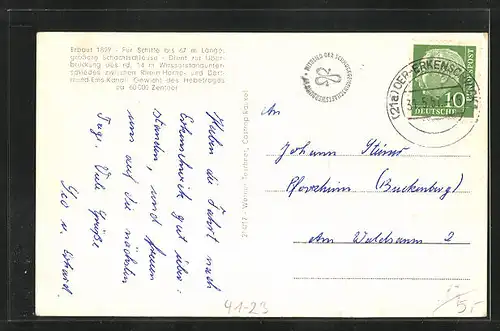 Erbaut 1899 - Für Schiffe bis 67 m Länge,
größere Schachtschleuse - Dient zur Über-
brückung des rd. 14 m Wasserstandunter-
schiedes zwischen Rhein-Herne- und Dort-
mund-Ems-Kanal. Gewicht des Hebetroges
ca. 60 000 Zentner
Haben die Fahrt nach
Erkenschwick gut über-
standen, und freuen
uns auf die nächsten
Tage. Viele Grüße
214/12 - Werner Teschner, Castrop-Rauxel
(21a) OER-ERKENSCHWICK
DEUTSCHE BUNDESPOST
10
An
Johann
Pforzheim (Buckenberg)
Am Waldsaum 2
41-23
5,-